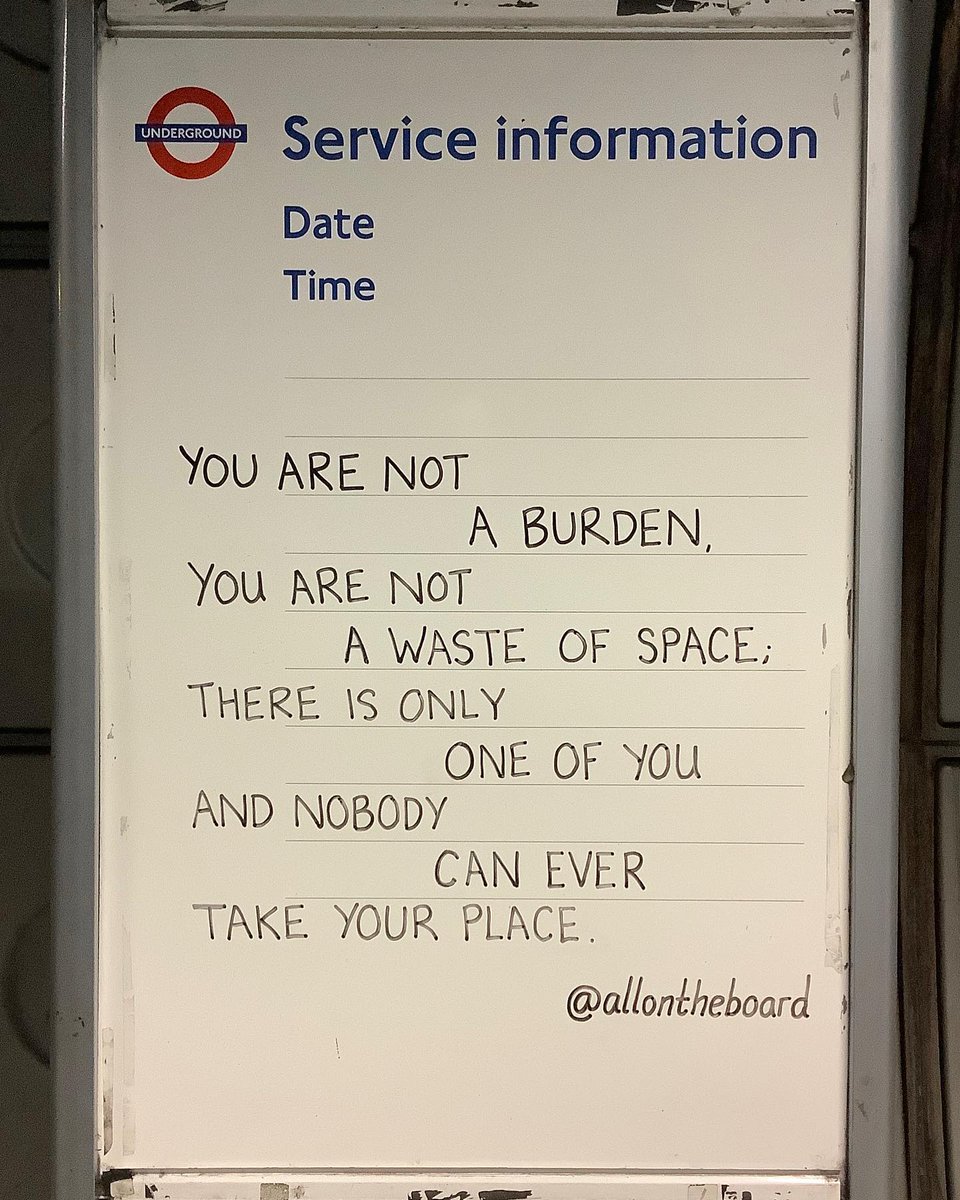 UNDERGROUND
Service information
Date
Time
YOU ARE NOT
A BURDEN,
YOU ARE NOT
A WASTE OF SPACE;
THERE IS ONLY
ONE OF YOU
AND NOBODY
CAN EVER
TAKE YOUR PLACE.
@allontheboard